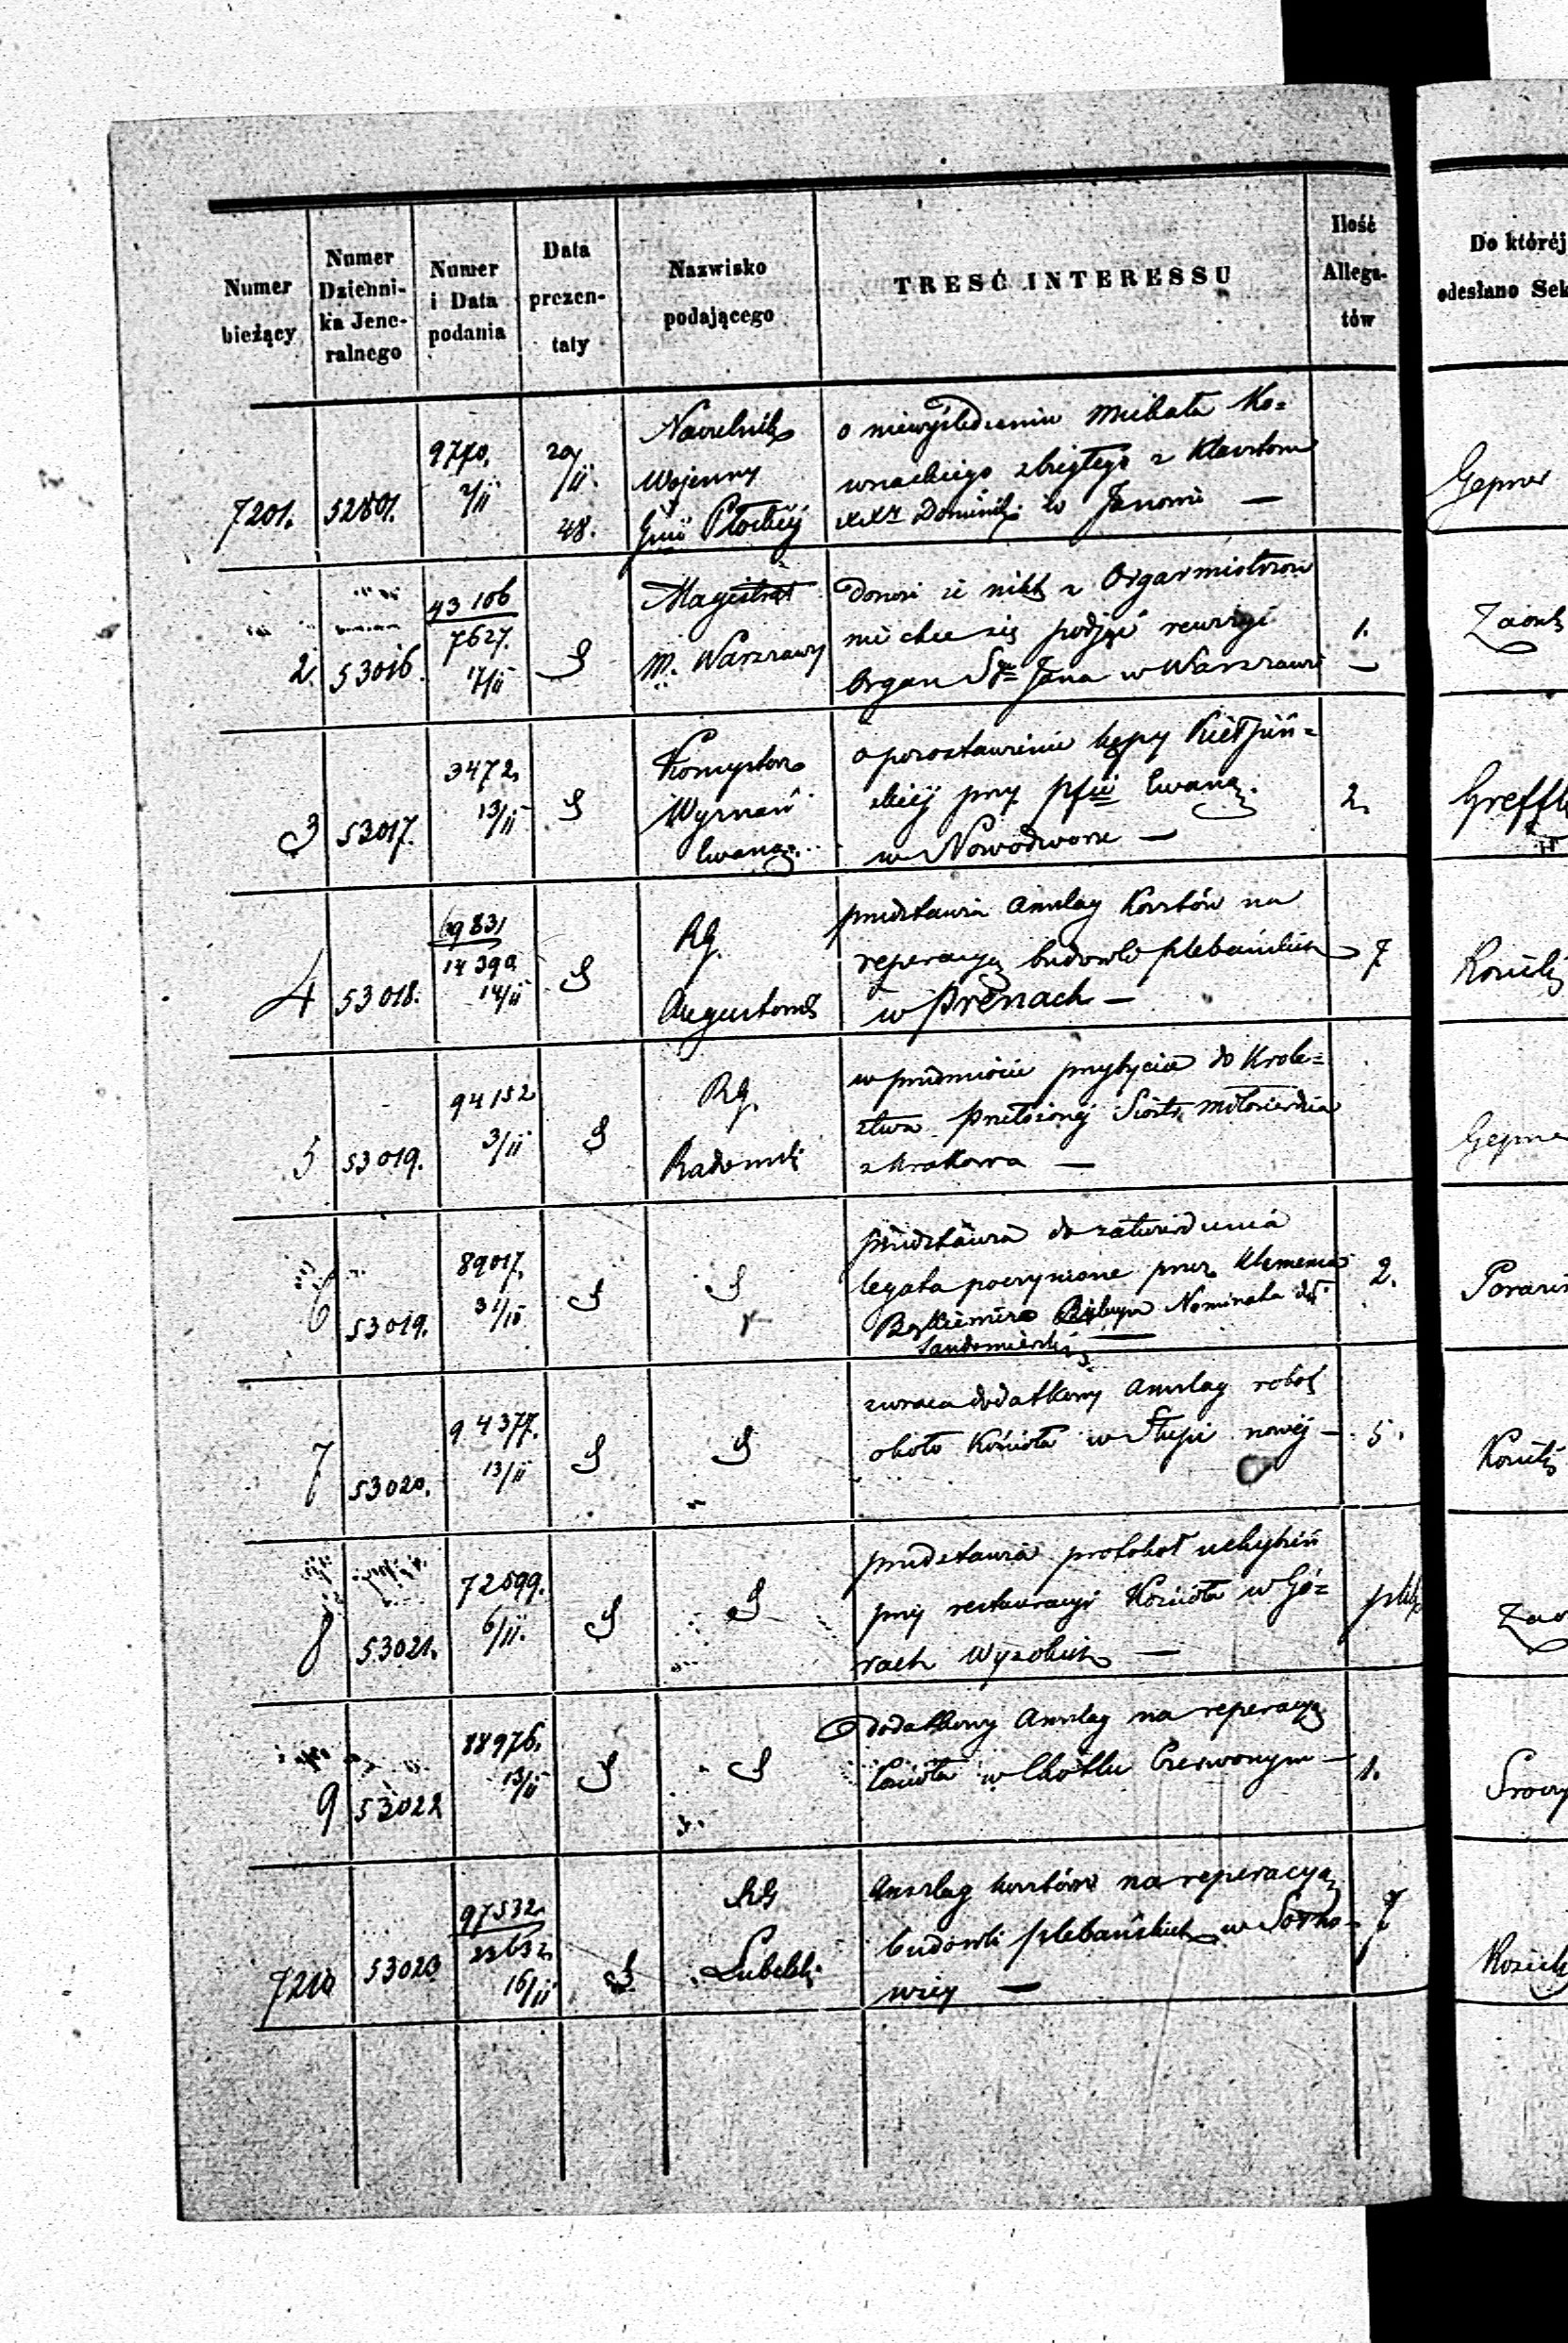 Numer bieżący | Numer Dzienni-ka Jene-ralnego | Numer i Data podania | Data prezen-taty | Nazwisko podającego | TRESĆ INTERESSU | Ilość Allega-tów | Do któréj odesłano Sek
7201. | 52801. | 9770. 2/II | 20/II. 48. | Naczelnik
Wojenny
Gnii Płockiéj | o niewyśledzeniu Michała Ko=
wnackiego zbiegłego z Klasztoru
XXr Dominik: w Janowie — | | Gepner
2. | 53016. | 43106
7627.
17/II | S | Magistrat
M. Warszawy | Donosi że nikt z Organmistrzów
nie chce się podjąć rewizyi
Organ Sgo Jana w Warszawie | 1. —
3 | 53017. | 3472. 13/II | S | Konsystorz
Wyznań
Ewang: | o pozostawienie kępy Kiełpiń=
skiéj przy pfii Ewang.
w Nowodworze — | 2.
4 | 53018. | 69831
14390
14/II | S | RG.
Augustows | przedstawia Anszlag Kosztów na
reperacyą budowli plebańskich
w Prenach — | 7
5 | 53019. | 94152 3/II | S | RG.
Radomski | w przedmiocie przybycia do Krole=
stwa Przełożonéj Siostr Miłosierdzia
z Krakowa —
6 | 53019. | 89017. 31/10 | S | S | przedstawia do zatwierdzenia
legata poczynione przez Klemensa
Bąkiewicza Biskupa Nominata
Sandomierski — | 2.
7 | 53020. | 94377. 13/II | S | S | zwraca dodatkowy Anszlag robot
około Kościoła w Słupi nowéj — | 5.
8 | 53021. | 72599. 6/II. | S | S | przedstawia protokoł uchybień
przy restauracyi Kościoła w Gó=
rach Wysokich — | plik
9 | 53022 | 88976. 13/II | S | S | Dodatkowy Anszlag na reperacyą
Kościoła w Chotlu Czerwonym — | 1.
7210 | 53023 | 97532
16/II | S | RG
Lubelski | Anszlag kosztów na reperacyą
budowli plebańskich w
wicy — | 7